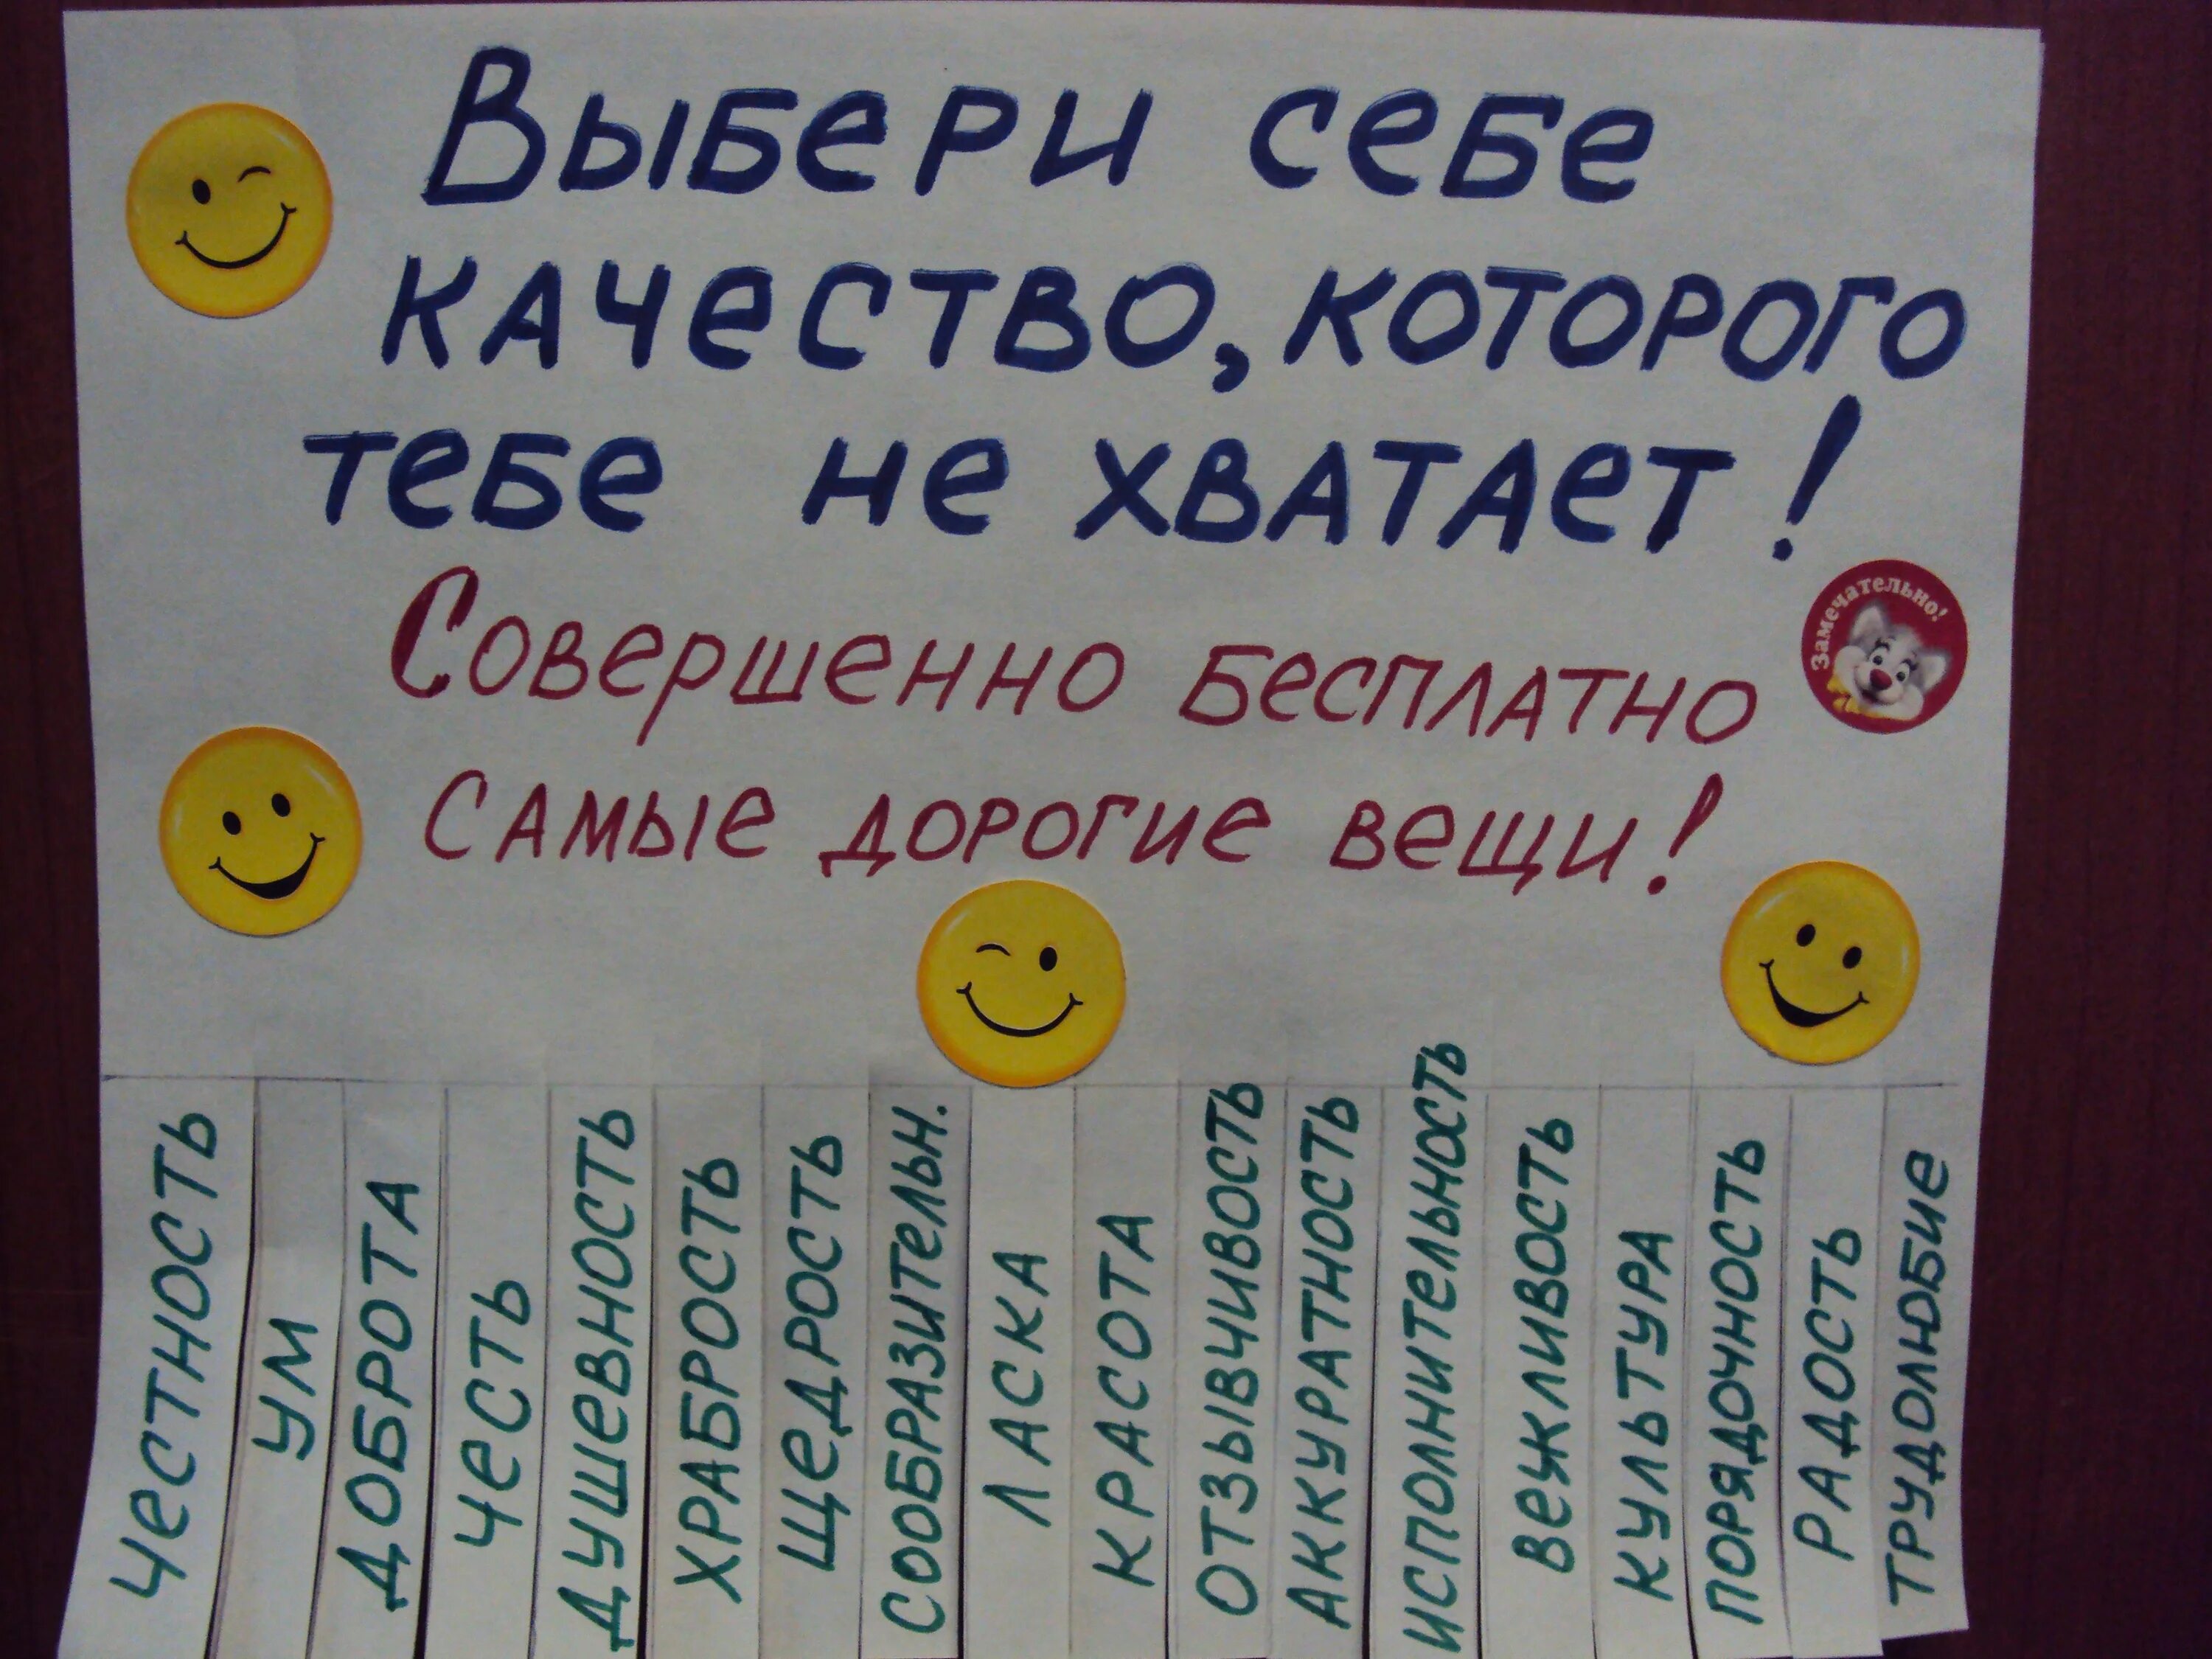 Выбери себе
качество, которого
тебе не хватает!
Совершенно бесплатно
Замечательно!
самые дорогие вещи!
честность
ум
доброта
честь
душевность
храбрость
щедрость
сообразительн.
ласка
красота
отзывчивость
аккуратность
исполнительность
вежливость
культура
порядочность
радость
трудолюбие